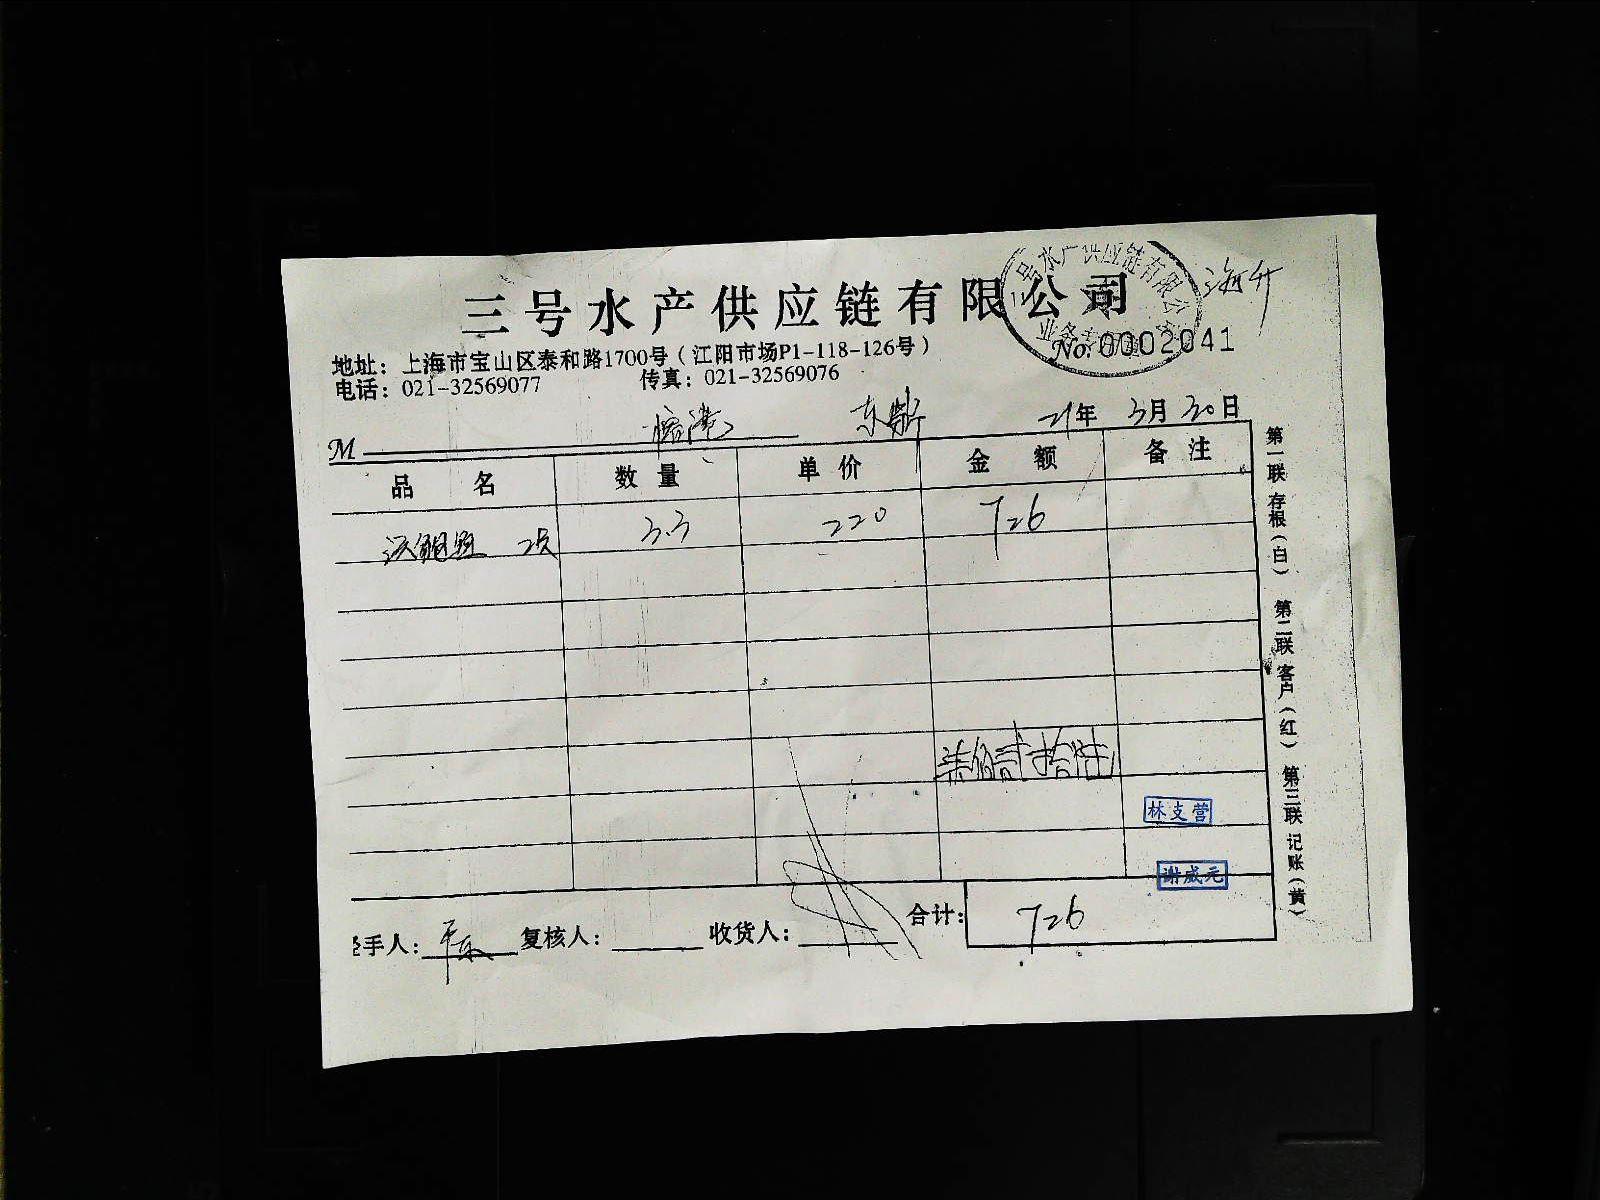 三号水产供应链有限公司
三号水产供应链有限公司
业务专用章
海升
No.0002041
地址：上海市宝山区泰和路1700号（江阳市场P1-118-126号）
电话：021-32569077 传真：021-32569076
M 东 21年 3月 30日
品 名 数量 单价 金 额 备 注
鲍 3.3 220 726
柒佰贰拾陆
林支营
谢威元
手人： 复核人： 收货人： 合计： 726
第一联 存根（白） 第二联 客户（红） 第三联 记账（黄）